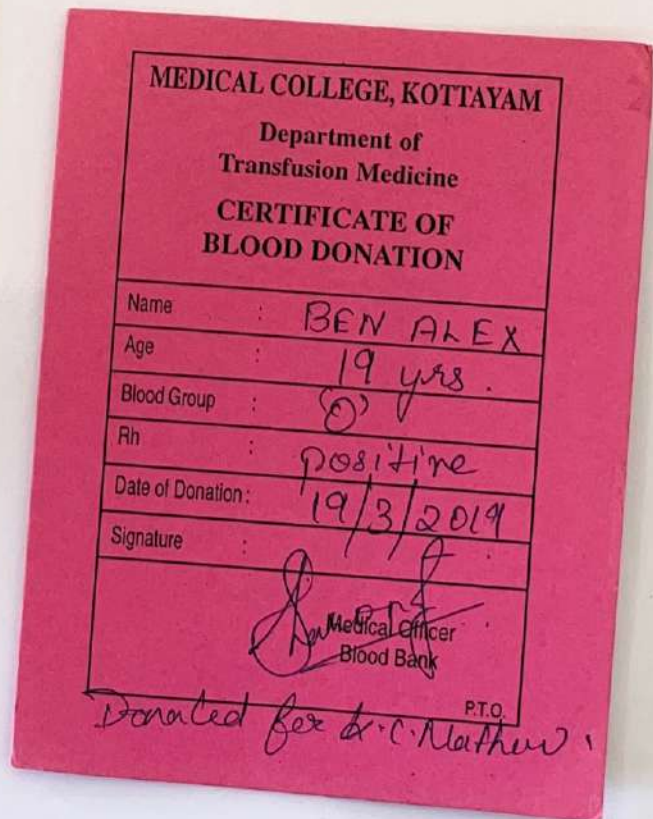 MEDICAL COLLEGE, KOTTAYAM
Department of
Transfusion Medicine
CERTIFICATE OF
BLOOD DONATION
Name : BEN ALEX
Age : 19 yrs.
Blood Group : 'O'
Rh : positive
Date of Donation : 19/3/2019
Signature :
Medical Officer
Blood Bank
P.T.O.
Donated for K.C. Mathew.